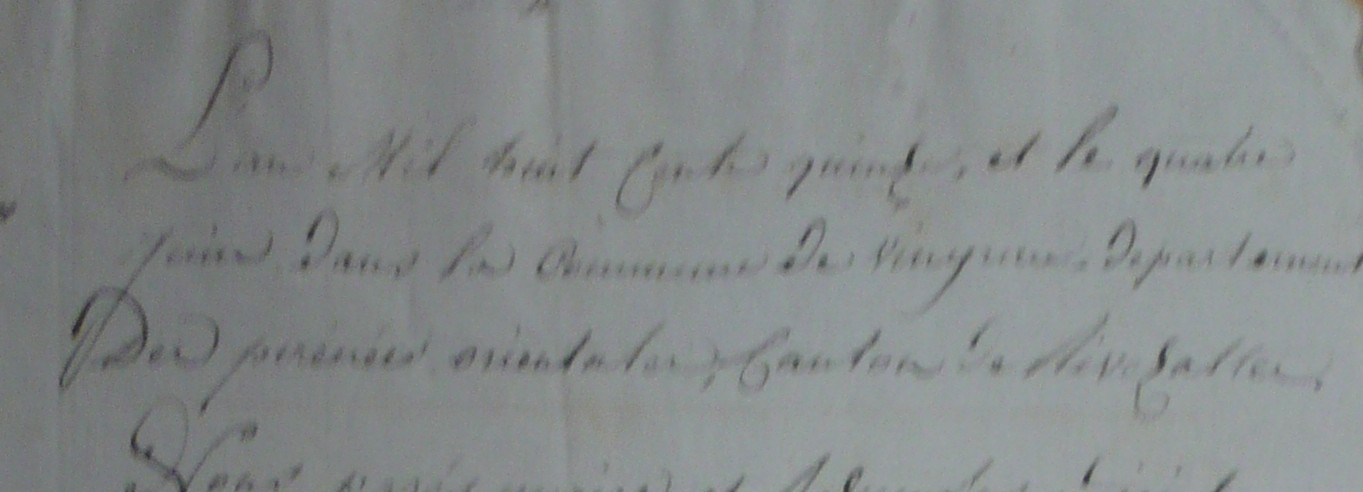 L'an Mil huit Cents quinze, et le quatre
juin dans la Commune de Vingrau, departement
Des pirénées orientales, Canton de Rivezaltes,
Nous